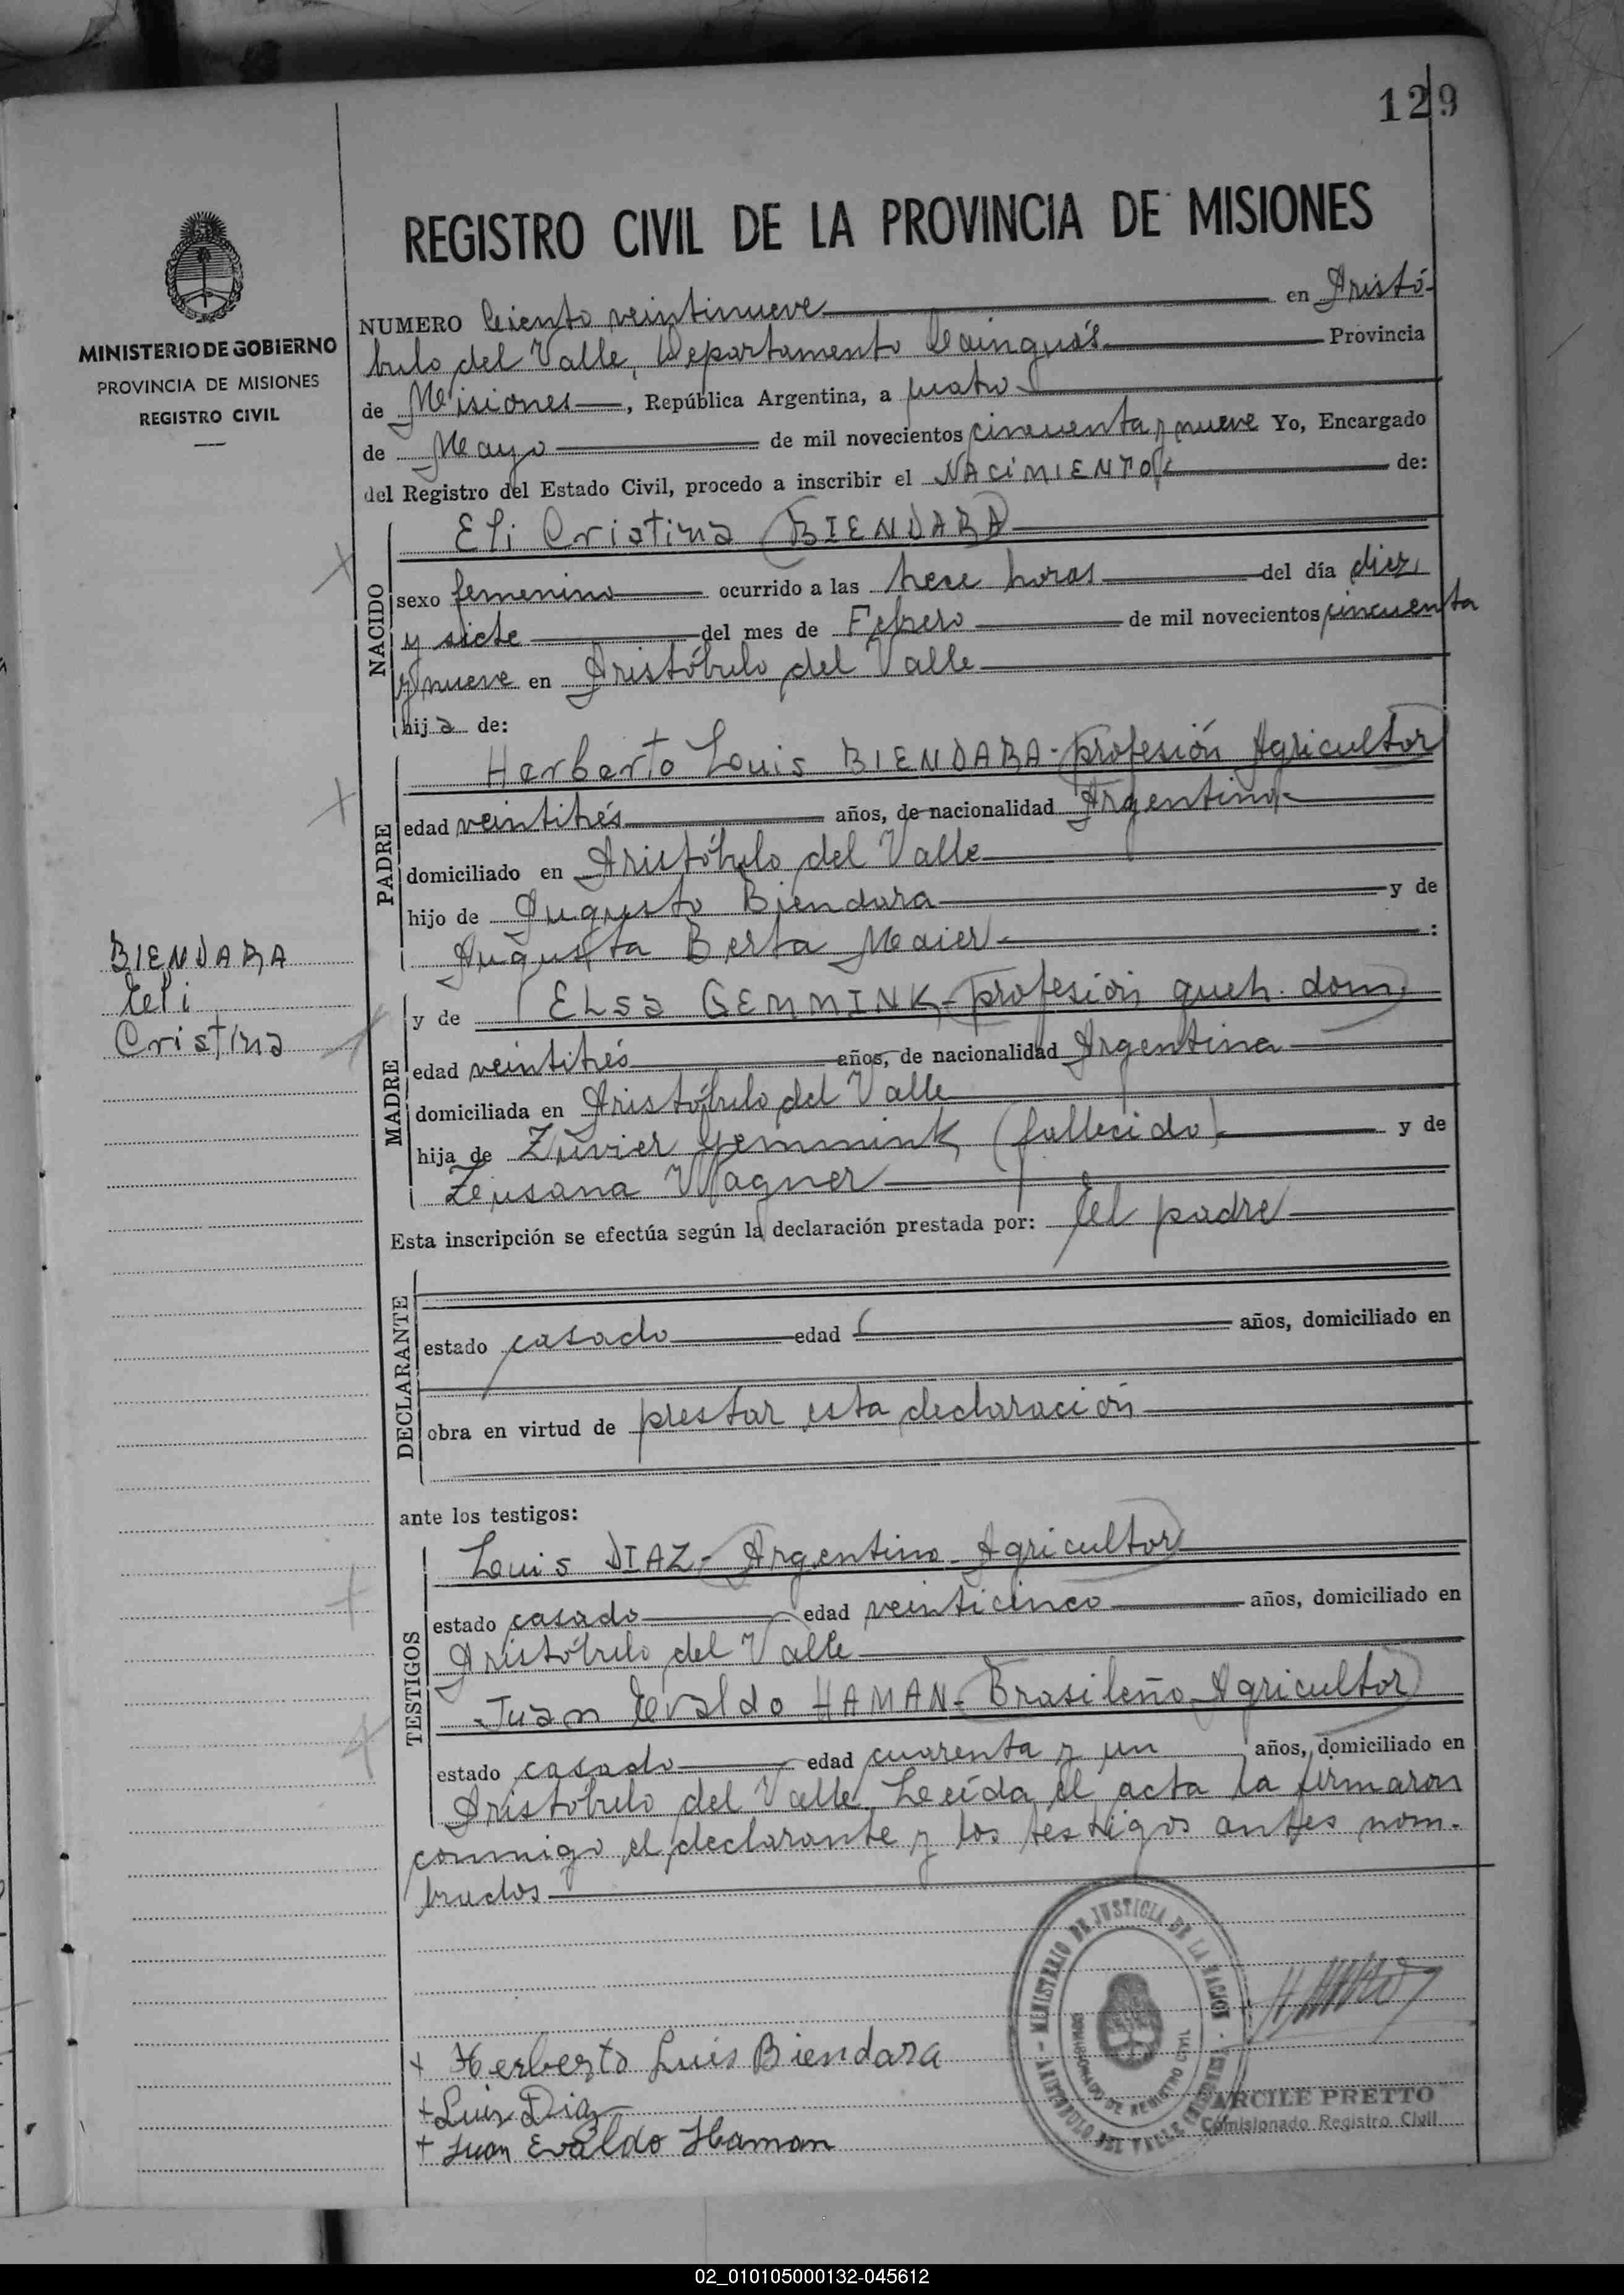 129
REGISTRO CIVIL DE LA PROVINCIA DE MISIONES
MINISTERIO DE GOBIERNO
PROVINCIA DE MISIONES
REGISTRO CIVIL
NUMERO Ciento veintinueve en Aristó-
bulo del Valle, Departamento Cainguás Provincia
de Misiones, República Argentina, a cuatro
de Mayo de mil novecientos cincuenta y nueve Yo, Encargado
del Registro del Estado Civil, procedo a inscribir el NACIMIENTO de:
NACIDO
Eli Cristina BIENDARA
sexo femenino ocurrido a las trece horas del día diez
y siete del mes de Febrero de mil novecientos cincuenta
y nueve en Aristóbulo del Valle
hija de:
PADRE
Herberto Luis BIENDARA - profesión Agricultor
edad veintitrés años, de nacionalidad Argentino-
domiciliado en Aristóbulo del Valle
hijo de Augusto Biendara y de
Augusta Berta Maier- :
BIENDARA
Eli
Cristina
MADRE
y de ELSA GEMMINK - profesión queh. dom.
edad veintitrés años, de nacionalidad Argentina
domiciliada en Aristóbulo del Valle
hija de Gemmink (fallecido) y de
Wagner
Esta inscripción se efectúa según la declaración prestada por: El padre
DECLARANTE
estado casado edad años, domiciliado en
obra en virtud de prestar esta declaración
ante los testigos:
TESTIGOS
Luis DIAZ - Argentino - Agricultor
estado casado edad veinticinco años, domiciliado en
Aristóbulo del Valle
Juan Evaldo HAMAN - Brasileño - Agricultor
estado casado edad cuarenta y un años, domiciliado en
Aristóbulo del Valle. Leída el acta la firmaron
conmigo el declarante y los testigos antes nom-
brados
MINISTERIO DE JUSTICIA DE LA NACION
DE REGISTRO CIVIL
ARISTOBULO DEL VALLE
+ Herberto Luis Biendara
+ Luis Diaz
+ Juan Evaldo Haman
ARCILE PRETTO
Comisionado Registro Civil
02_010105000132-045612